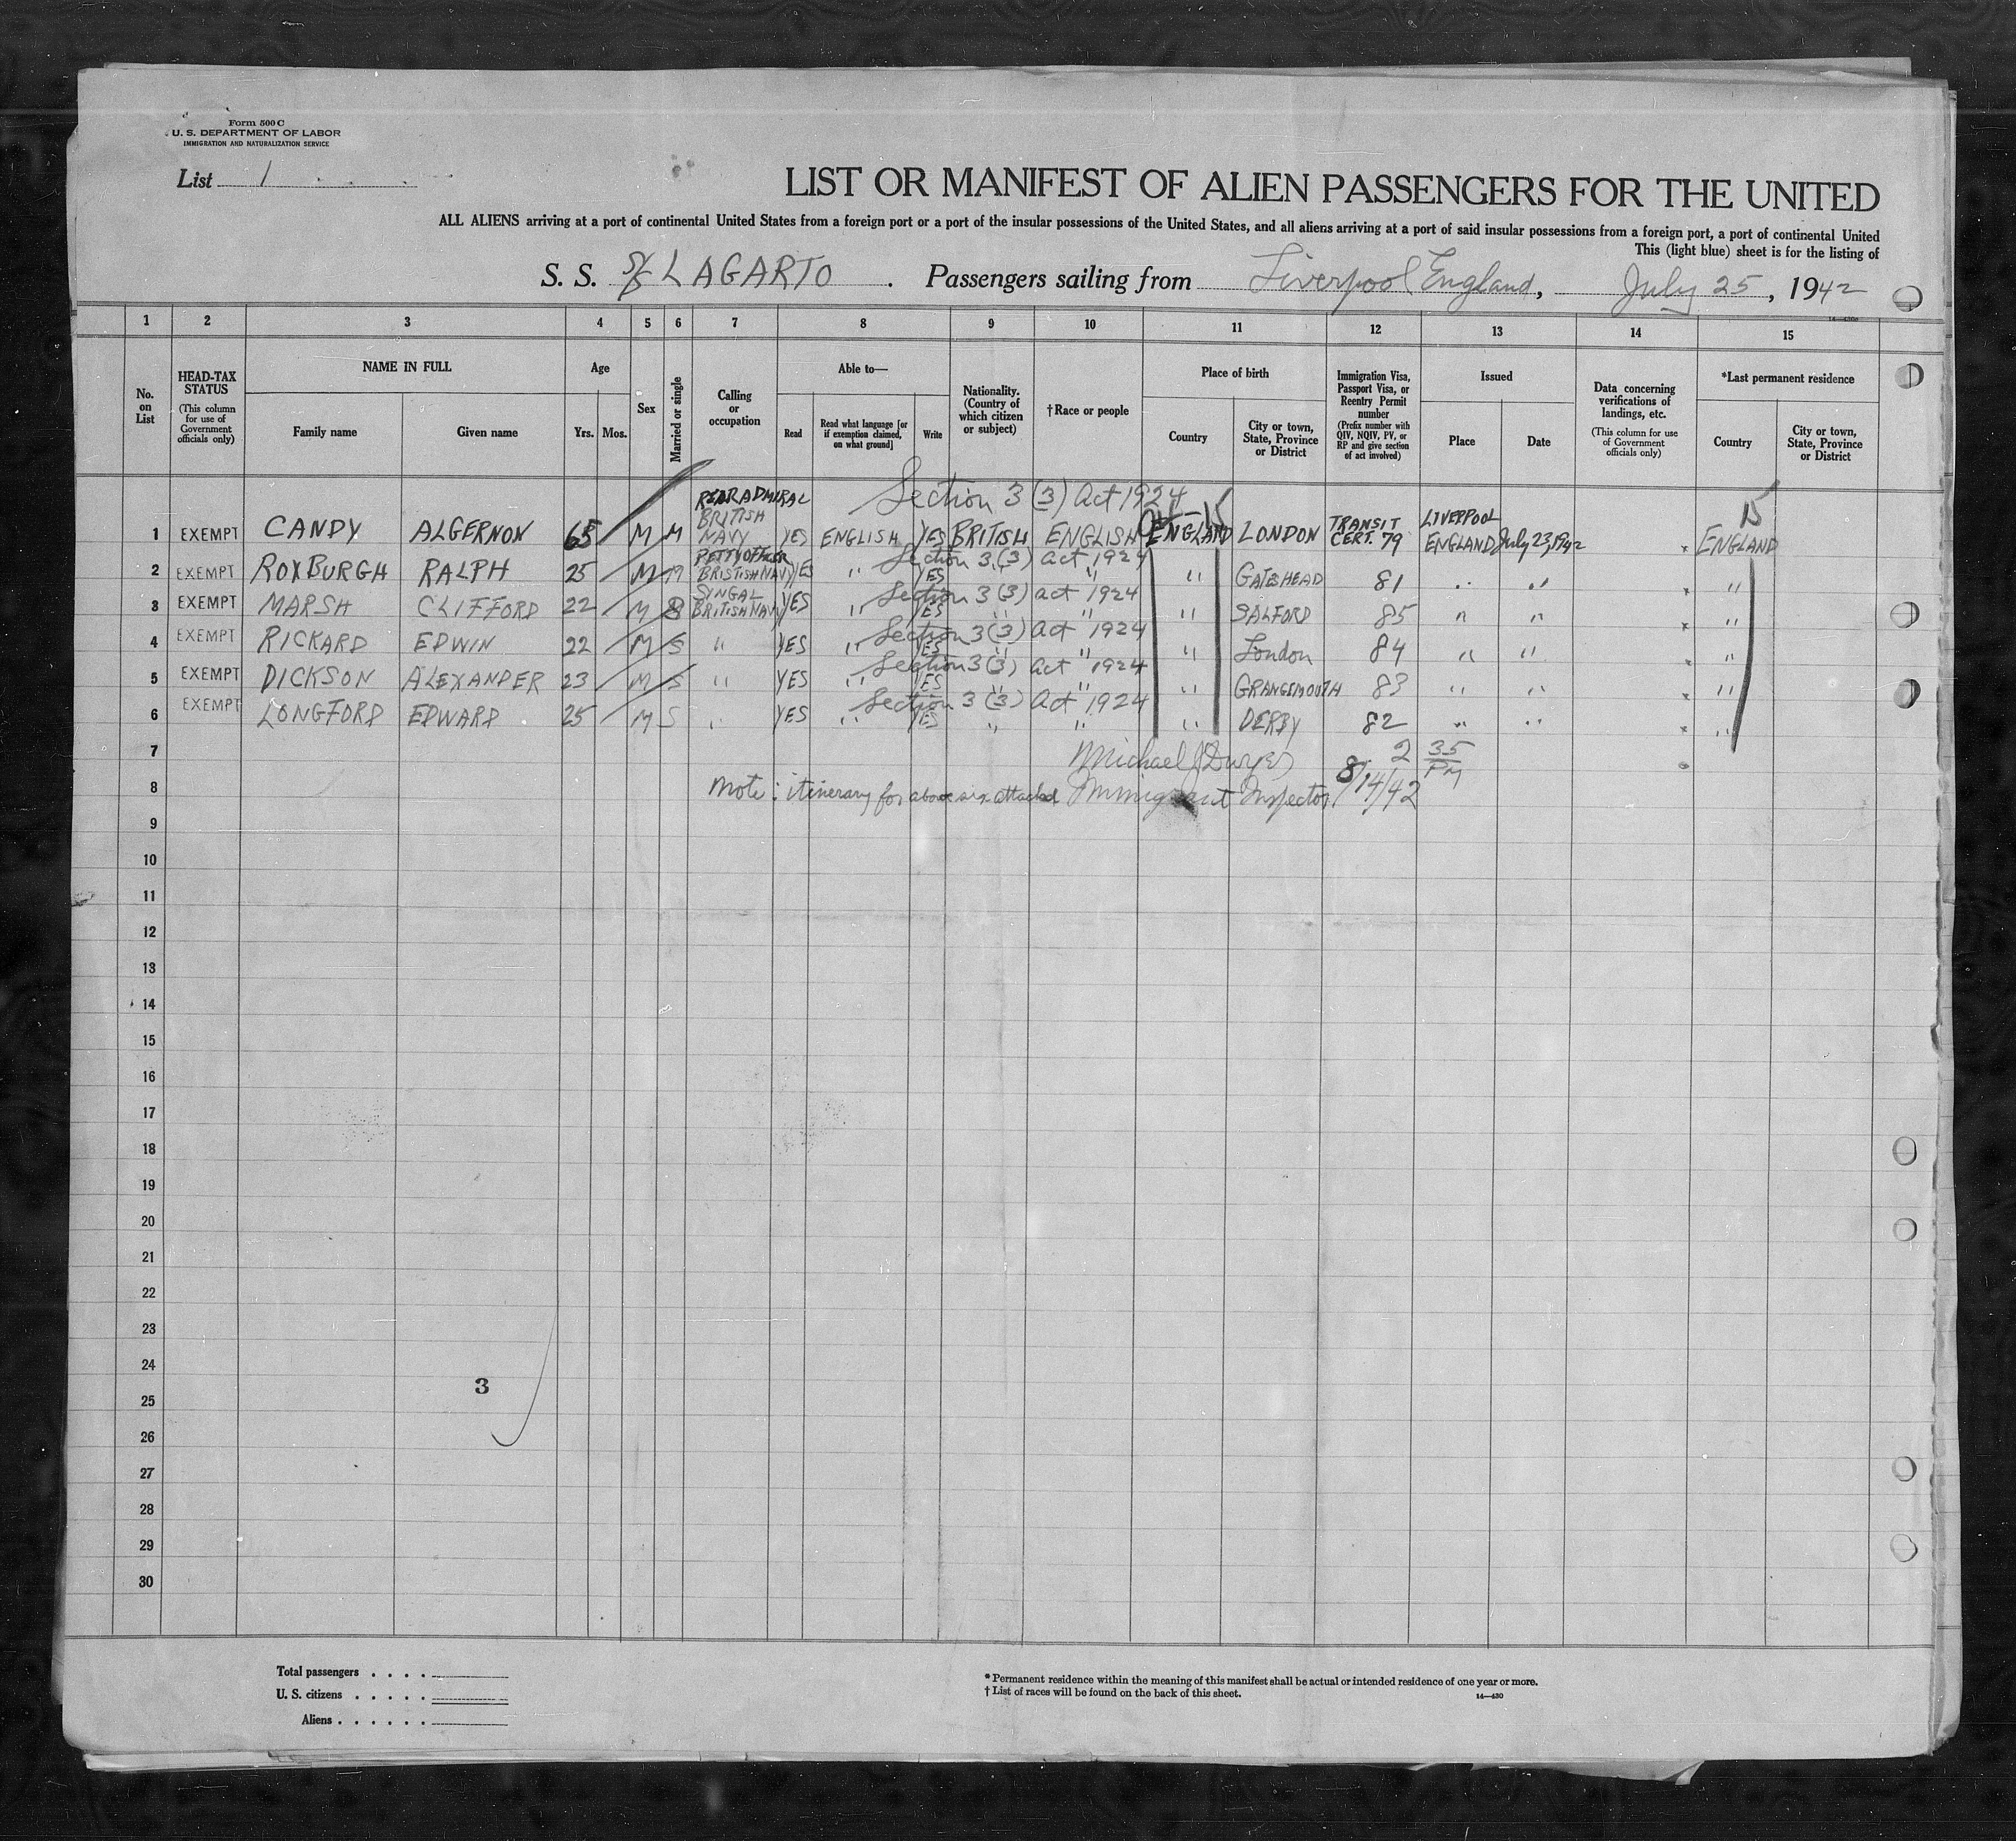 Form 500 C
U. S. DEPARTMENT OF LABOR
IMMIGRATION AND NATURALIZATION SERVICE
List 1
LIST OR MANIFEST OF ALIEN PASSENGERS FOR THE UNITED
ALL ALIENS arriving at a port of continental United States from a foreign port or a port of the insular possessions of the United States, and all aliens arriving at a port of said insular possessions from a foreign port, a port of continental United
This (light blue) sheet is for the listing of
S. S. S/S LAGARTO . Passengers sailing from Liverpool England, July 25, 1942
14—430c
1 2 3 4 5 6 7 8 9 10 11 12 13 14 15
No. on List
HEAD-TAX STATUS (This column for use of Government officials only)
NAME IN FULL
Family name
Given name
Age
Yrs. Mos.
Sex
Married or single
Calling or occupation
Able to—
Read
Read what language [or if exemption claimed, on what ground]
Write
Nationality. (Country of which citizen or subject)
†Race or people
Place of birth
Country
City or town, State, Province or District
Immigration Visa, Passport Visa, or Reentry Permit number (Prefix number with QIV, NQIV, PV, or RP and give section of act involved)
Issued
Place
Date
Data concerning verifications of landings, etc. (This column for use of Government officials only)
*Last permanent residence
Country
City or town, State, Province or District
Section 3 (3) Act 1924
15
1 EXEMPT CANDY ALGERNON 65 M M REAR ADMIRAL BRITISH NAVY YES ENGLISH YES BRITISH ENGLISH ENGLAND LONDON TRANSIT CERT. 79 LIVERPOOL ENGLAND July 23, 1942 ENGLAND
Section 3 (3) act 1924
2 EXEMPT ROXBURGH RALPH 25 M M PETTY OFFICER BRISTISH NAVY YES " YES " " GATESHEAD 81 " " "
Section 3 (3) act 1924
3 EXEMPT MARSH CLIFFORD 22 M S SYNGAL BRITISH NAVY YES " YES " " " SALFORD 85 " " "
Section 3 (3) Act 1924
4 EXEMPT RICKARD EDWIN 22 M S " YES " YES " " " London 84 " " "
Section 3 (3) act 1924
5 EXEMPT DICKSON ALEXANDER 23 M S " YES " YES " " " GRANGEMOUTH 83 " " "
Section 3 (3) Act 1924
6 EXEMPT LONGFORD EDWARD 25 M S " YES " YES " " " DERBY 82 " " "
7 Michael J Dwyer 2 35 PM
8 Note: itinerary for above six attached Immigrant Inspector 8/14/42
9
10
11
12
13
14
15
16
17
18
19
20
21
22
23
24
3
25
26
27
28
29
30
Total passengers . . . .
U. S. citizens . . . . .
Aliens . . . . . .
* Permanent residence within the meaning of this manifest shall be actual or intended residence of one year or more.
† List of races will be found on the back of this sheet.
14—430